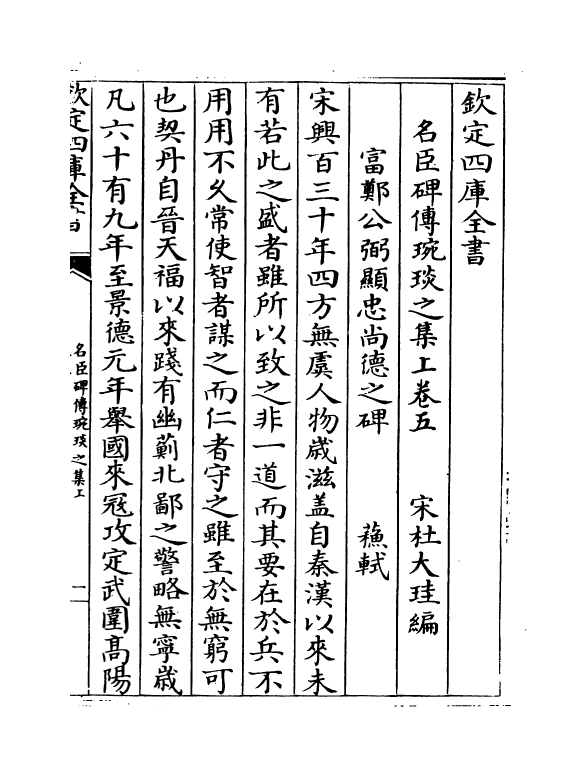 欽定四庫全書
名臣碑傳琬琰之集上卷五 宋杜大珪編
富鄭公弼顯忠尚德之碑 蘓軾
宋興百三十年四方無虞人物歳滋盖自秦漢以來未
有若此之盛者雖所以致之非一道而其要在於兵不
用用不久常使智者謀之而仁者守之雖至於無窮可
也契丹自晉天福以來踐有幽薊北鄙之警略無寧歳
凡六十有九年至景德元年舉國來宼攻定武圍髙陽
欽定四庫全書
名臣碑傳琬琰之集上
一